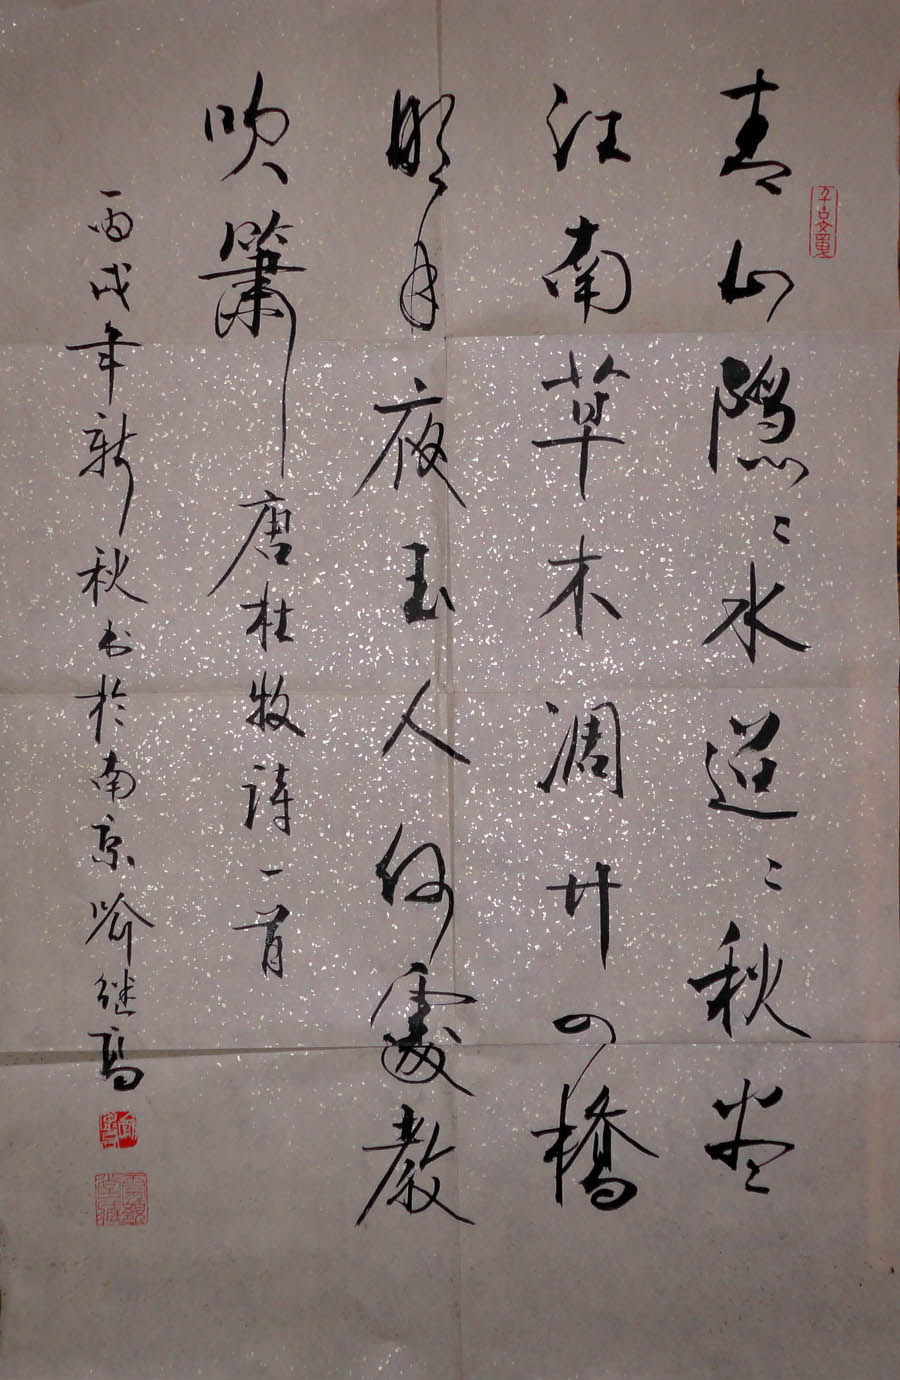 青山隐〻水迢〻秋尽
江南草木凋廿四橋
明月夜玉人何處教
吹簫唐杜牧詩一首
丙戌年新秋书於南京喻继高